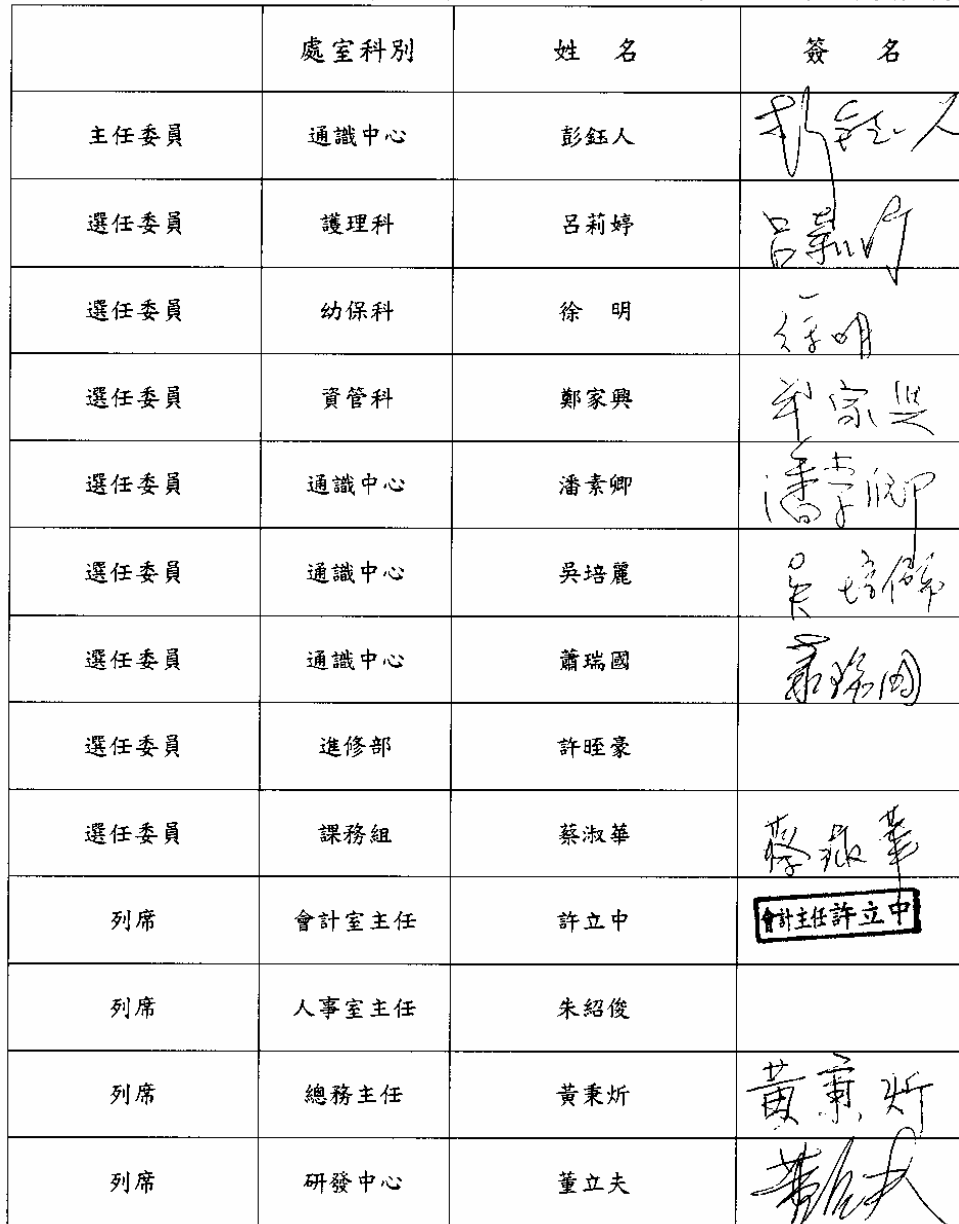 處室科別 姓 名 簽 名
主任委員 通識中心 彭鈺人 彭鈺人
選任委員 護理科 呂莉婷 呂莉婷
選任委員 幼保科 徐 明 徐明
選任委員 資管科 鄭家興 鄭家興
選任委員 通識中心 潘素卿 潘素卿
選任委員 通識中心 吳培麗 吳培麗
選任委員 通識中心 蕭瑞國 蕭瑞國
選任委員 進修部 許晊豪
選任委員 課務組 蔡淑華 蔡淑華
列席 會計室主任 許立中 會計主任許立中
列席 人事室主任 朱紹俊
列席 總務主任 黃秉炘 黃秉炘
列席 研發中心 董立夫 董立夫